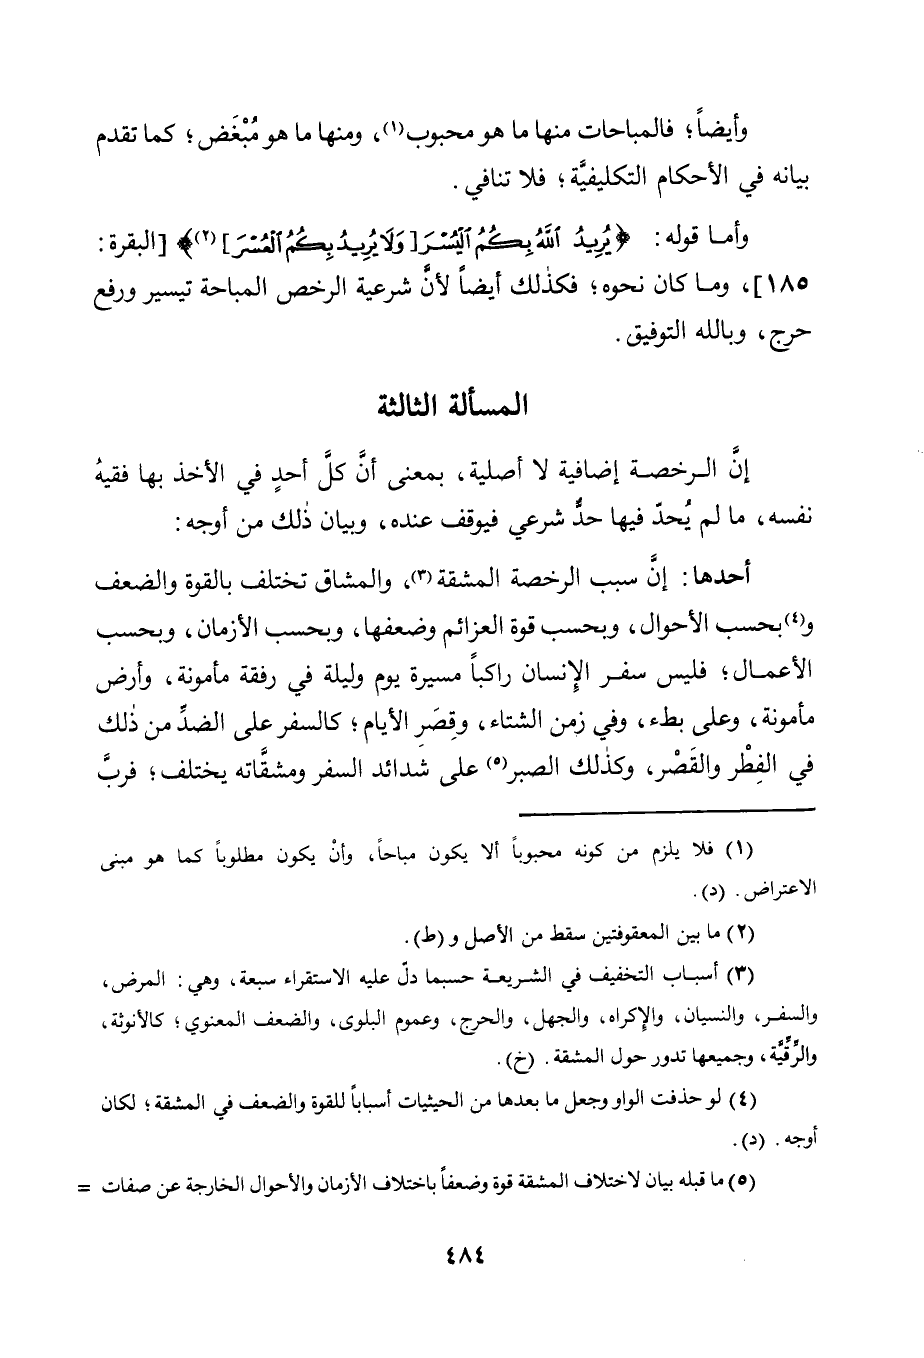 وأيضاً؛ فالمباحات منها ما هو محبوب(١)، ومنها ما هو مُبْغَض؛ كما تقدم
بيانه في الأحكام التكليفيَّة؛ فلا تنافي.
وأما قوله: ﴿يُرِيدُ اللَّهُ بِكُمُ الْيُسْرَ [وَلَا يُرِيدُ بِكُمُ الْعُسْرَ](٢)﴾ [البقرة:
١٨٥]، وما كان نحوه؛ فكذٰلك أيضاً لأنَّ شرعية الرخص المباحة تيسير ورفع
حرج، وبالله التوفيق.
المسألة الثالثة
إنَّ الرخصة إضافية لا أصلية، بمعنى أنَّ كلَّ أحدٍ في الأخذ بها فقيهُ
نفسه، ما لم يُحدّ فيها حدٌّ شرعي فيوقف عنده، وبيان ذٰلك من أوجه:
أحدها: إنَّ سبب الرخصة المشقة(٣)، والمشاق تختلف بالقوة والضعف
و(٤)بحسب الأحوال، وبحسب قوة العزائم وضعفها، وبحسب الأزمان، وبحسب
الأعمال؛ فليس سفر الإنسان راكباً مسيرة يوم وليلة في رفقة مأمونة، وأرض
مأمونة، وعلى بطء، وفي زمن الشتاء، وقِصَرِ الأيام؛ كالسفر على الضدِّ من ذٰلك
في الفِطْر والقَصْر، وكذٰلك الصبر(٥) على شدائد السفر ومشقَّاته يختلف؛ فربَّ
(١) فلا يلزم من كونه محبوباً ألا يكون مباحاً، وأنْ يكون مطلوباً كما هو مبنى
الاعتراض. (د).
(٢) ما بين المعقوفتين سقط من الأصل و (ط).
(٣) أسباب التخفيف في الشريعة حسبما دلّ عليه الاستقراء سبعة، وهي: المرض،
والسفر، والنسيان، والإكراه، والجهل، والحرج، وعموم البلوى، والضعف المعنوي؛ كالأنوثة،
والرِّقِّيَّة، وجميعها تدور حول المشقة. (خ).
(٤) لو حذفت الواو وجعل ما بعدها من الحيثيات أسباباً للقوة والضعف في المشقة؛ لكان
أوجه. (د).
(٥) ما قبله بيان لاختلاف المشقة قوة وضعفاً باختلاف الأزمان والأحوال الخارجة عن صفات =
٤٨٤